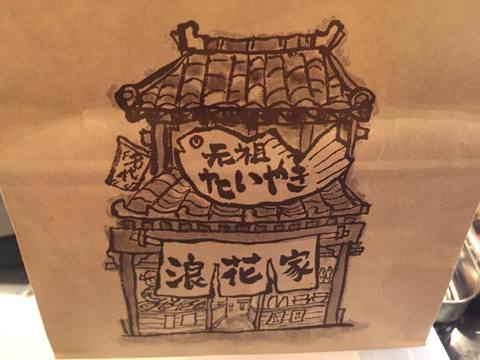 元祖
たいやき
浪花家